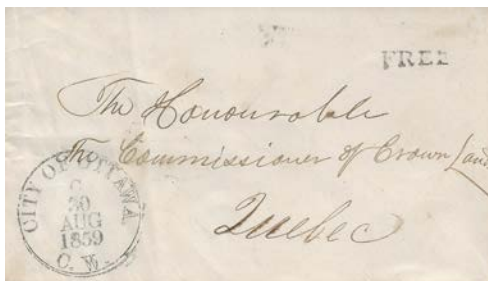 FREE
The Honourable
The Commissioner of Crown Lands
Quebec
CITY OF OTTAWA
C
30
AUG
1859
C. W.